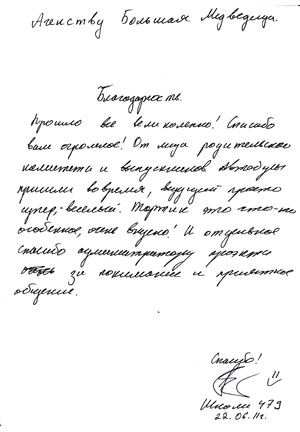 Агенству Большая Медведица.
Благодарность.
Прошло все великолепно! Спасибо
вам огромное! От лица родительского
комитета и выпускников. Автобусы
пришли вовремя, ведущий просто
супер, веселый. Тортик это что-то
особенное, очень вкусно! И отдельное
спасибо администратору проекта
за понимание и приятное
общение.
Спасибо!
Школа 479
22.06.11г.